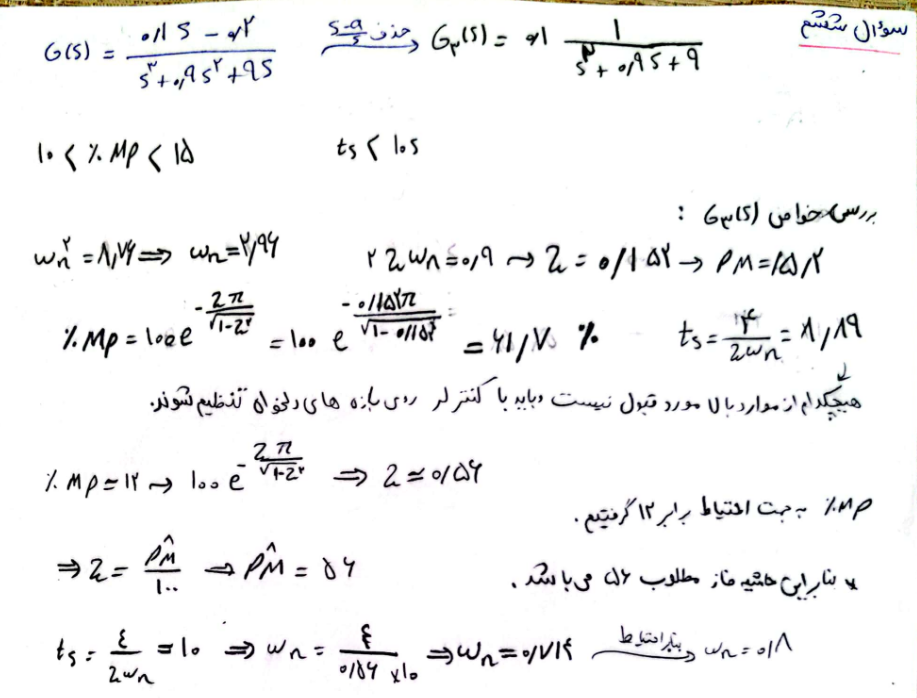 سوال ششم
G(s) = (0/1 s - 0/2) / (s^3 + 0/9 s^2 + 9s) حذف (s-a)/s → G_3(s) = 0/1 1/(s^2 + 0/9 s + 9)
۱۰ < % Mp < ۱۵ ts < 10s
بررسی خواص G_3(s) :
ωn^۲ = ۸,۷۶ ⇒ ωn = ۲,۹۶ ۲ζωn = ۰,۹ → ζ = ۰/۱۵۲ → PM = ۱۵,۲
% Mp = 100 e^(-ζπ/√(1-ζ^۲)) = 100 e^(-۰/۱۵۲π/√(1-۰/۱۵۲^۲)) = ۶۱,۷۰ % ts = ۴/(ζωn) = ۸,۸۹
هیچکدام از موارد بالا مورد قبول نیست و باید با کنترلر روی بازه های دلخواه تنظیم شوند.
% Mp = ۱۲ → 100 e^(-ζπ/√(1-ζ^۲)) ⇒ ζ ≃ ۰/۵۶
Mp٪ به جهت احتیاط برابر ۱۲ گرفتیم.
⇒ ζ = PM̂/۱۰۰ ⇒ PM̂ = ۵۶
* بنابراین حاشیه فاز مطلوب ۵۶ می باشد.
ts = ۴/(ζωn) = ۱۰ ⇒ ωn = ۴/(۰/۵۶ × ۱۰) ⇒ ωn = ۰/۷۱۴ بنابر احتیاط → ωn = ۰/۸